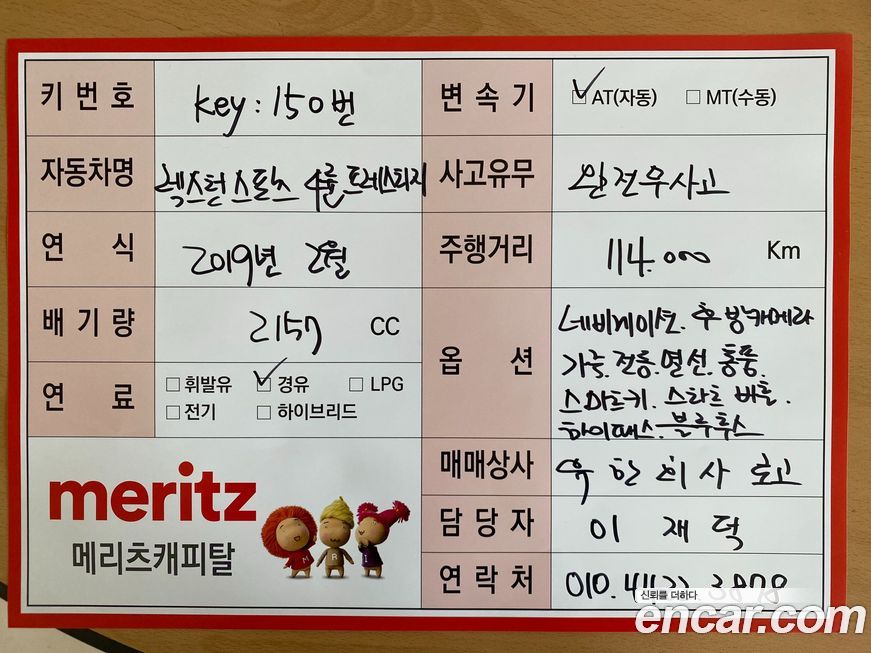 키 번 호 key : 150번 변 속 기 AT(자동) MT(수동)
자동차명 렉스턴 스포츠 4륜 프레스티지 사고유무 완전무사고
연 식 2019년 2월 주행거리 114.000 Km
배 기 량 2157 CC 옵 션 네비게이션. 후방카메라
가죽. 전동. 열선. 통풍.
연 료 휘발유 경유 LPG 스마트키. 스타트 버튼.
전기 하이브리드 하이패스. 블루투스
meritz 매매상사 유한회사
메리츠캐피탈 담 당 자 이 재 덕
연 락 처 010.
신뢰를 더하다
encar.com